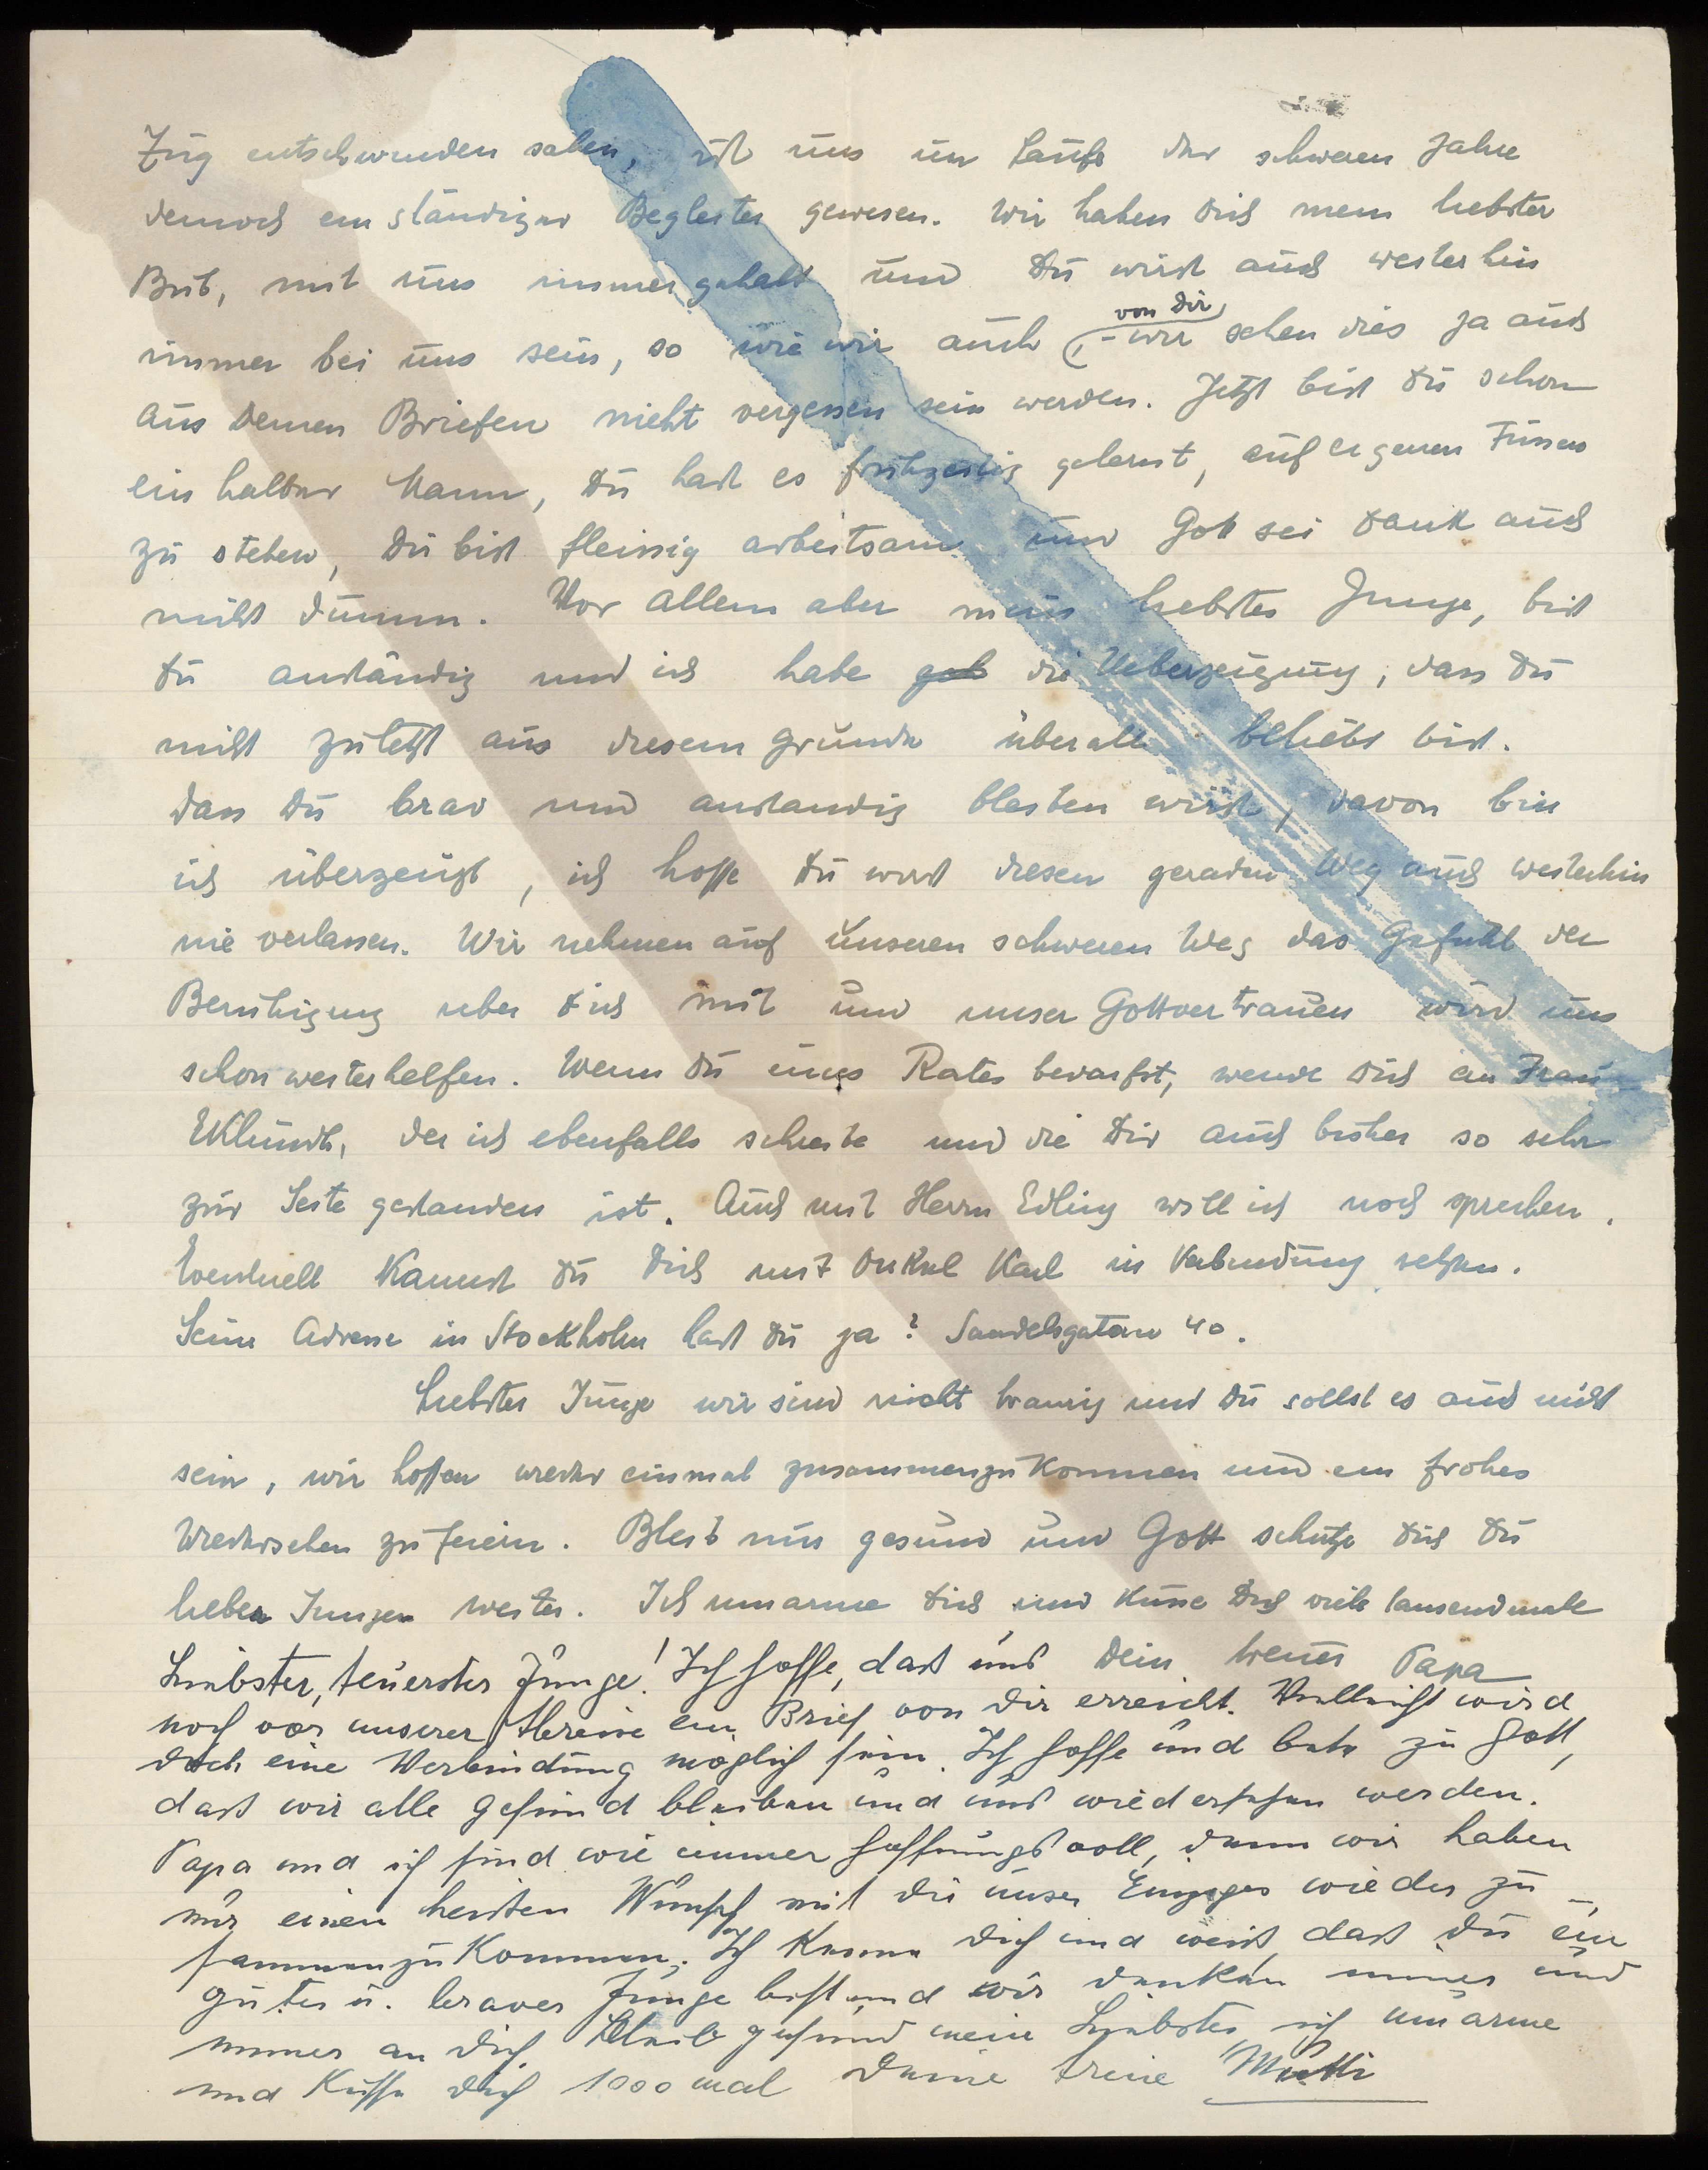 Zug entschwinden sahen, ist uns im Laufe der schweren Jahre
dennoch ein ständiger Begleiter gewesen. Wir haben Dich mein liebster
Bub, mit uns immer gehabt und Du wirst auch weiterhin
immer bei uns sein, so wie wir auch von Dir, – wir sehen dies ja auch
aus Deinen Briefen nicht vergessen sein werden. Jetzt bist Du schon
ein halber Mann, Du hast es frühzeitig gelernt, auf eigenen Füssen
zu stehen, Du bist fleissig arbeitsam und Gott sei Dank auch
nicht dumm. Vor allem aber mein liebster Junge, bist
Du anständig und ich habe geh die Ueberzeugung, dass Du
nicht zuletzt aus diesem Grunde überall beliebt bist.
Dass Du brav und anständig bleiben wirst, davon bin
ich überzeugt, ich hoffe Du wirst diesen geraden Weg auch weiterhin
nie verlassen. Wir nehmen auf unseren schweren Weg das Gefühl der
Beruhigung über Dich mit und unser Gottvertrauen wird uns
schon weiterhelfen. Wenn Du eines Rates bedarfst, wende Dich an Frau
Eklundt, der ich ebenfalls schreibe und die Dir auch bisher so sehr
zur Seite gestanden ist. Auch mit Herrn Edling will ich noch sprechen.
Eventuell kannst Du Dich mit Onkel Karl in Verbindung setzen.
Seine Adresse in Stockholm hast Du ja? Sandelsgatan 40.
Liebster Junge wir sind nicht traurig und Du sollst es auch nicht
sein, wir hoffen wieder einmal zusammenzukommen und ein frohes
Wiedersehen zu feiern. Bleib nur gesund und Gott schütze Dich Du
lieber Junge weiter. Ich umarme Dich und küsse Dich viele tausendmale
Dein treuer Papa
Liebster, teuerster Junge! Ich hoffe, dass uns
noch vor unserer Abreise ein Brief von Dir erreicht. Vielleicht wird
doch eine Verbindung möglich sein. Ich hoffe und bete zu Gott,
dass wir alle gesund bleiben und uns wiedersehen werden.
Papa und ich sind wie immer hoffnungsvoll, denn wir haben
nur einen heissen Wunsch mit Dir unser Einziges wieder zu-
sammenzukommen. Ich kenne Dich und weiss, dass Du ein
guter u. braver Junge bist und wir denken immer und
immer an Dich. Bleib gesund mein Liebster, ich umarme
und küsse Dich 1000 mal Deine treue Mutti